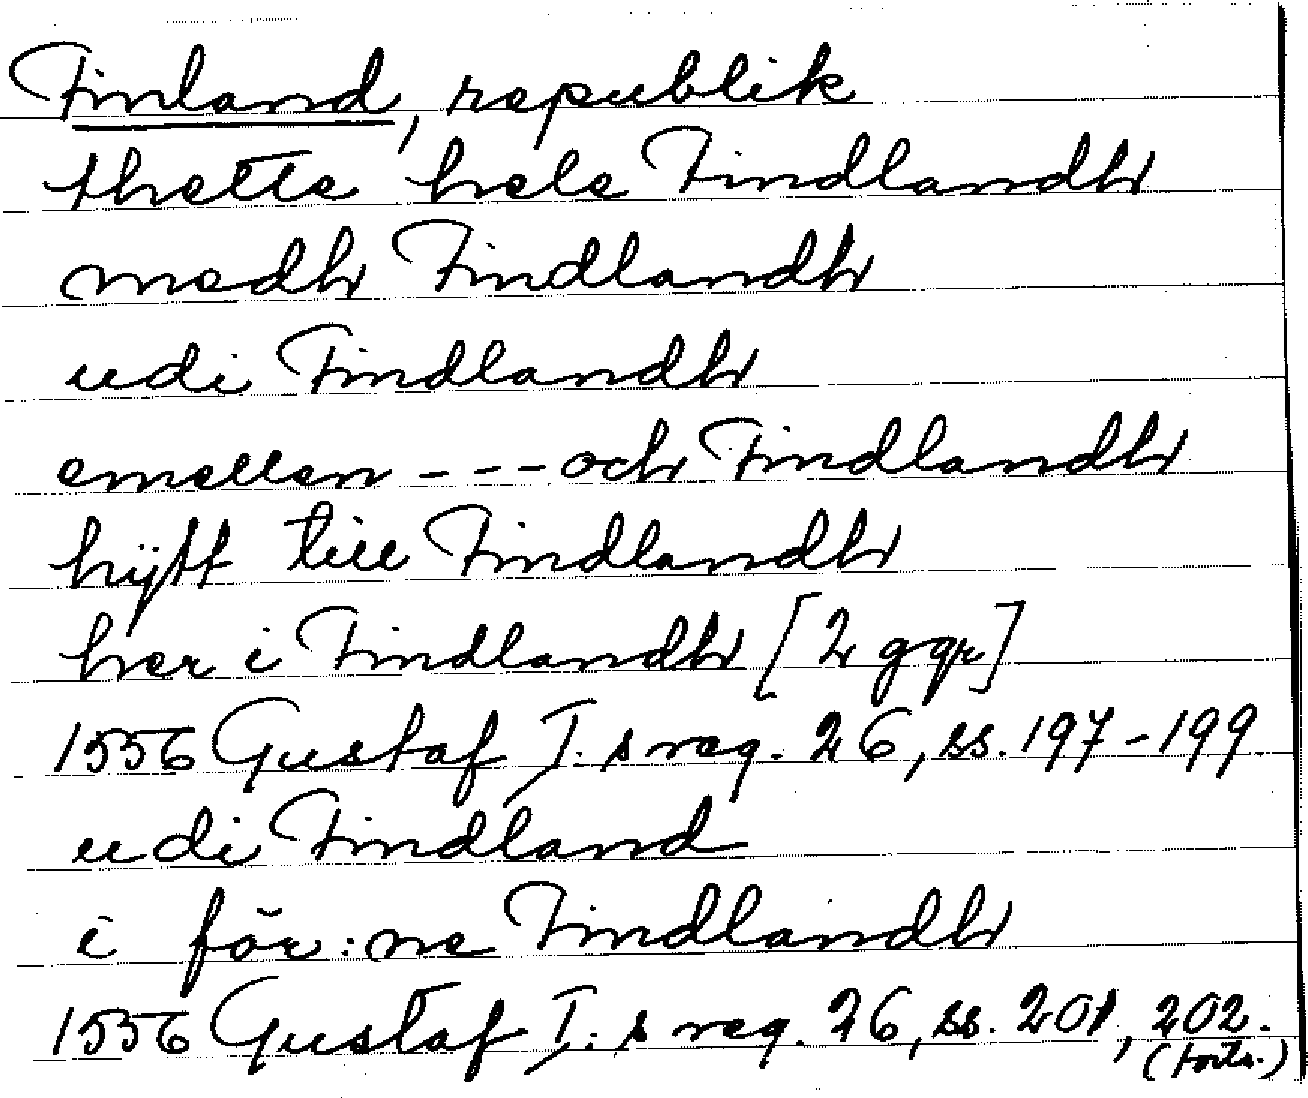 Finland, republik
thette hele Findlandh
medh Findlandh
udi Findlandh
emellen - - - och Findlandh
hijtt till Findlandh
her i Findlandh [2 ggr]
1556 Gustaf I:s reg. 26, ss. 197-199.
udi Findland
i för:ne Findlandh
1556 Gustaf I:s reg. 26, ss. 201, 202.
(forts.)